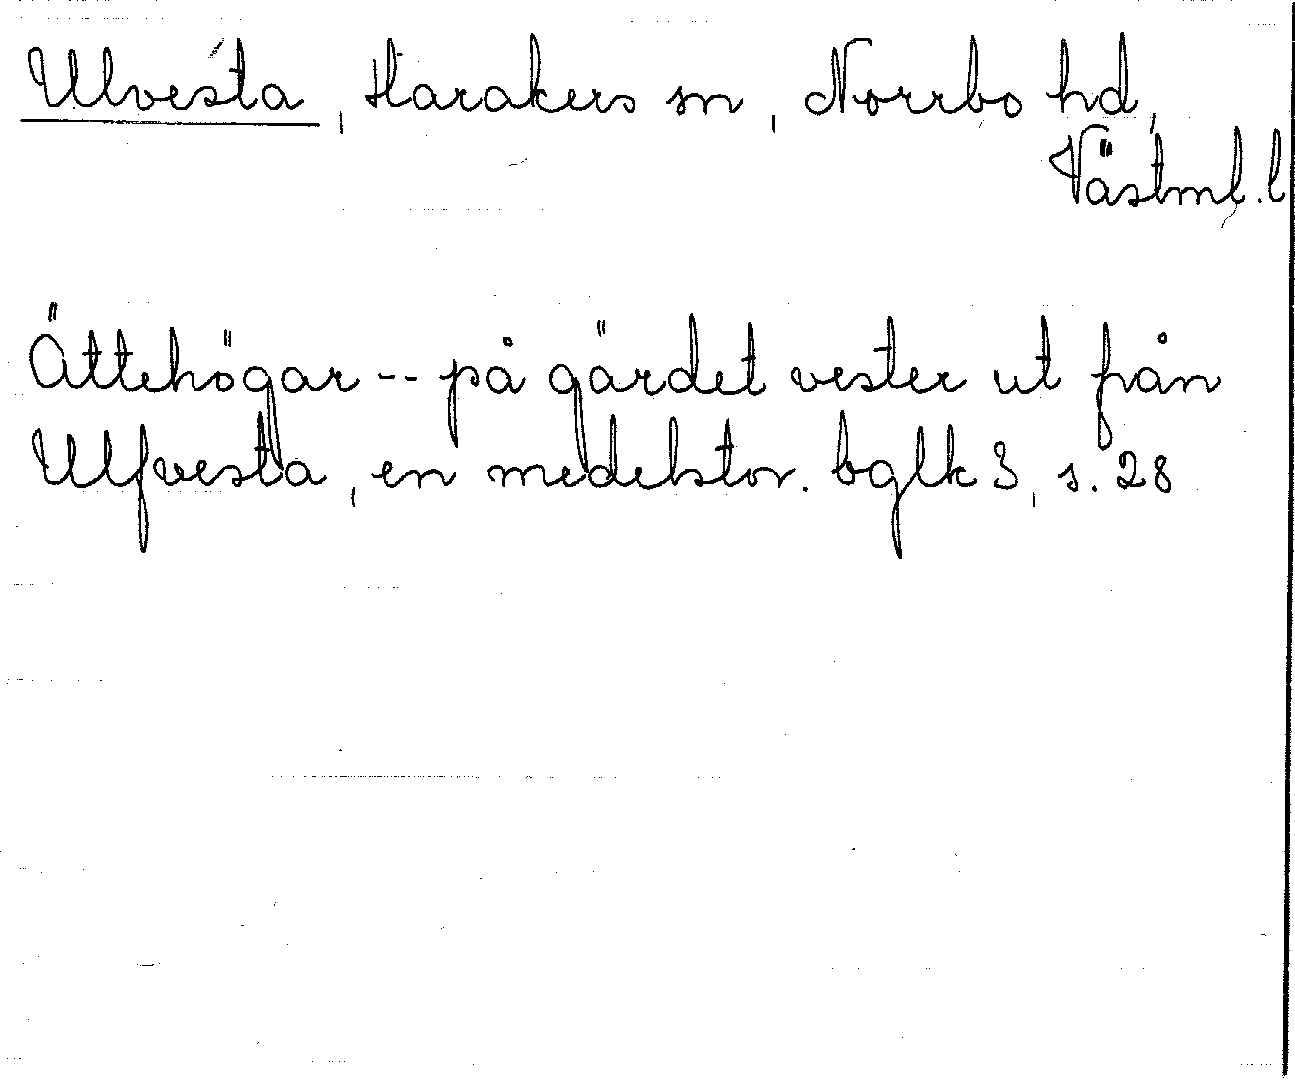 Ulvesta, Harakers sn, Norrbo hd,
Västml. l
Ättehögar -- på gärdet vester ut från
Ulfvesta, en medelstor. bglk 3, s. 28